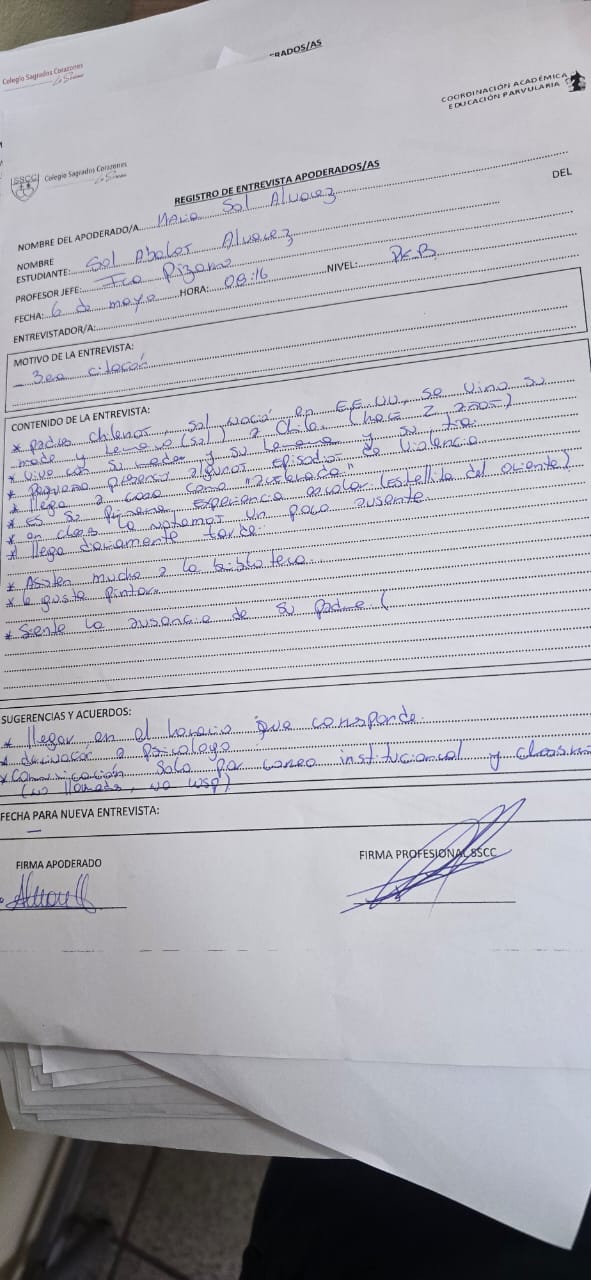 Colegio Sagrados Corazones
RADOS/AS
COORDINACIÓN ACADÉMICA
EDUCACIÓN PARVULARIA
SSCC Colegio Sagrados Corazones
REGISTRO DE ENTREVISTA APODERADOS/AS
NOMBRE DEL APODERADO/A Maria Sol Alvarez
NOMBRE DEL
ESTUDIANTE: Sol Abalos Alvarez
PROFESOR JEFE: Fca Pizarro
FECHA: 6 de mayo HORA: 08:16 NIVEL: PK-B
ENTREVISTADOR/A:
MOTIVO DE LA ENTREVISTA:
- 3era citación
CONTENIDO DE LA ENTREVISTA:
* padres chilenos, Sol nació en EE.UU, se vino su
made y (Sol) a Chile. (hace 2 años)
* vive con su madre y su y su tia.
* pequeña presencio algunos episodios de violencia
* llega a casa como "acelerada"
* es su primera experiencia escolar (estrellita del oriente)
* en clases la notamos un poco ausente
* llega tarde.
* Asisten mucho a la biblioteca.
* le gusta pintar.
* Siente la ausencia de su padre (
SUGERENCIAS Y ACUERDOS:
* llegar en el horario que corresponde.
* derivación a psicologo
* Comunicación solo por correo institucional y
(no llamada, no wsp)
FECHA PARA NUEVA ENTREVISTA:
-
FIRMA APODERADO
FIRMA PROFESIONAL SSCC